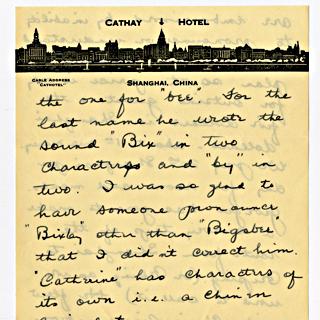 CATHAY HOTEL
CABLE ADDRESS
"CATHOTEL"
SHANGHAI, CHINA
the one for "bee". For the
last name he wrote the
sound "Bix" in two
characters and "by" in
two. I was so glad to
have someone pronounce
"Bixby" other than "Bigsbee"
that I didn't correct him.
"Catherine" has characters of
its own i.e. a chinese